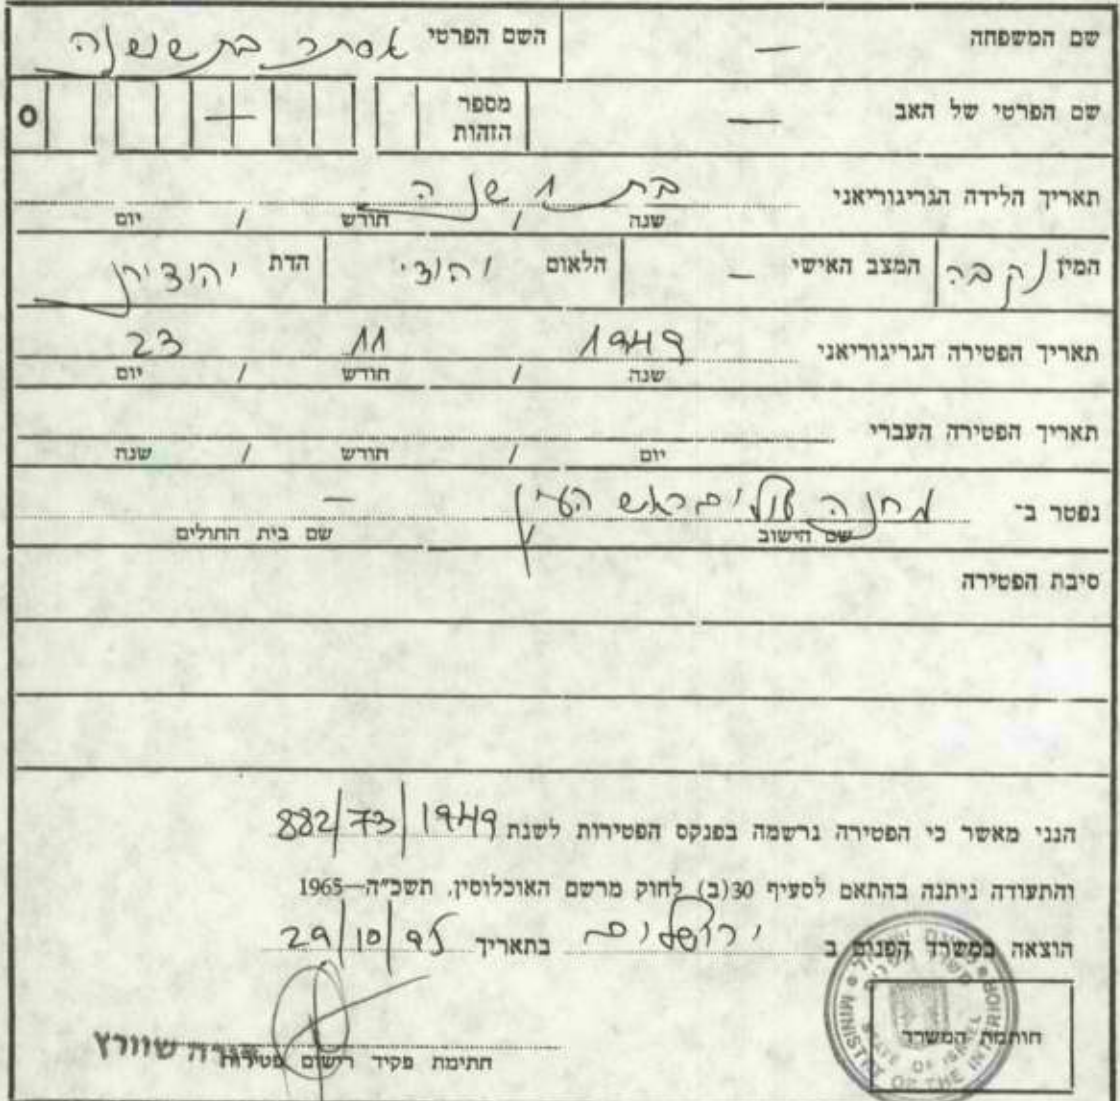 שם המשפחה — השם הפרטי אסתר בת שושנה
שם הפרטי של האב — מספר הזהות 0
תאריך הלידה הגריגוריאני בת 1 שנה
שנה / חודש / יום
המין נקבה המצב האישי — הלאום יהודי הדת יהודית
תאריך הפטירה הגריגוריאני 1949 11 23
שנה / חודש / יום
תאריך הפטירה העברי
יום / חודש / שנה
נפטר ב־ מחנה עולים ראש העין —
שם הישוב שם בית החולים
סיבת הפטירה
הנני מאשר כי הפטירה נרשמה בפנקס הפטירות לשנת 882/73/1949
והתעודה ניתנה בהתאם לסעיף 30(ב) לחוק מרשם האוכלוסין, תשכ״ה—1965
הוצאה במשרד הפנים ב ירושלים בתאריך 29/10/95
חותמת המשרד
MINISTRY OF THE INTERIOR
STATE OF ISRAEL
חתימת פקיד רישום פטירות
שוורץ